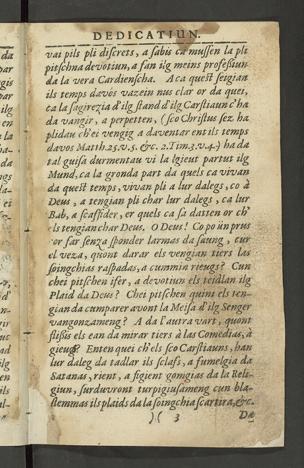 DEDICATIUN.
vai pils pli discrets, a sabis ca mussen la pli
pitschna devotiun, a fan ilg meins professiun
da la vera Cardienscha. A ca quest seigian
ils temps davos vazein nus clar or da quei,
ca la sagirezia d'ilg stand d'ilg Carstiaun c'ha
da vangir, a perpetten, (sco Christus sez ha
plidau ch'ei vengig a daventar ent ils temps
davos Matth. 25. v. 5. &c. 2. Tim. 3. v. 4.) ha da
tal guisa durmentau vi la lgieut partut ilg
Mund, ca la gronda part da quels ca vivan
da quest temps, vivan pli a lur dalegs, co à
Deus, a tengian pli char lur dalegs, ca lur
Bab, a scaffider, er quels ca sa datten or ch'
els tengian char Deus. O Deus! Co po ün prus
or far senza sponder larmas da saung, cur
el veza, quont darar els vengian tiers las
soingchias raspadas, a cummin rieugs? Cun
chei pitschen ifer, a devotiun els teidlan ilg
Plaid da Deus? Chei pitschen quint els ten-
gian da cumparer avont la Meisa d'ilg Senger
vangonzameng? A da l'autra vart, quont
stissis els ean da mirar tiers à las Comedias, à
gieugs? Enten quei ch'els sco Carstiauns, han
lur daleg da tadlar ils sclafs, a fumelgia da
Satanas, rient, a figient gomgias da la Reli-
giun, surduvront turpigiusameng cun bla-
stemmas ils plaids da la soingchia scartira, &c.
)( 3 Da